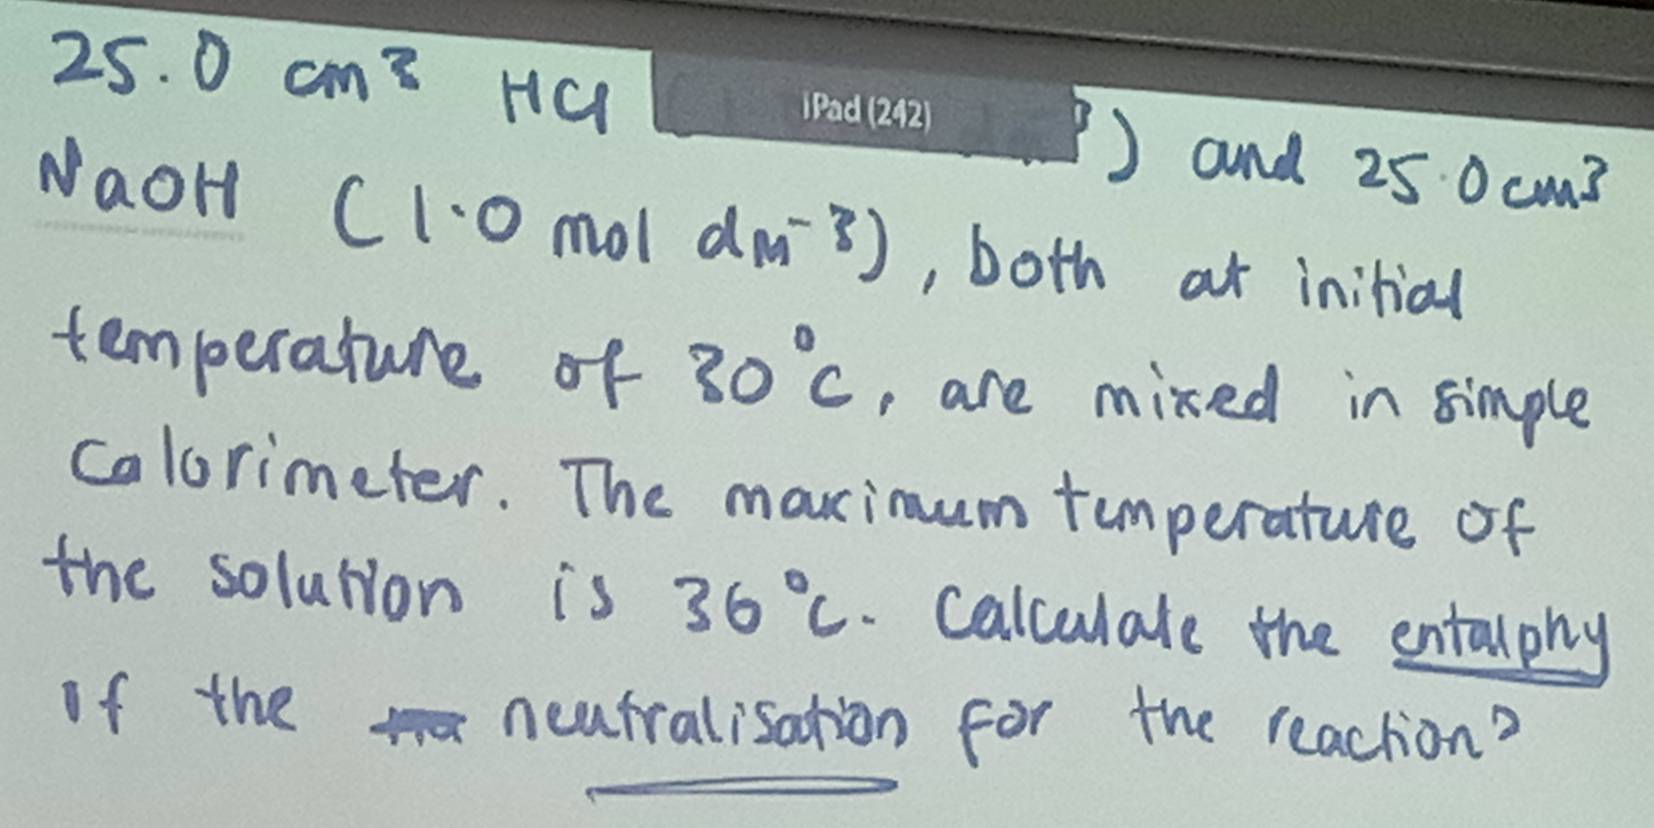 25.0 cm³ HCl iPad (242) ³) and 25.0 cm³
NaOH (1.0 mol dm⁻³), both at initial
temperature of 30°C, are mixed in simple
calorimeter. The maximum temperature of
the solution is 36°C. Calculate the entalphy
of the neutralisation for the reaction?